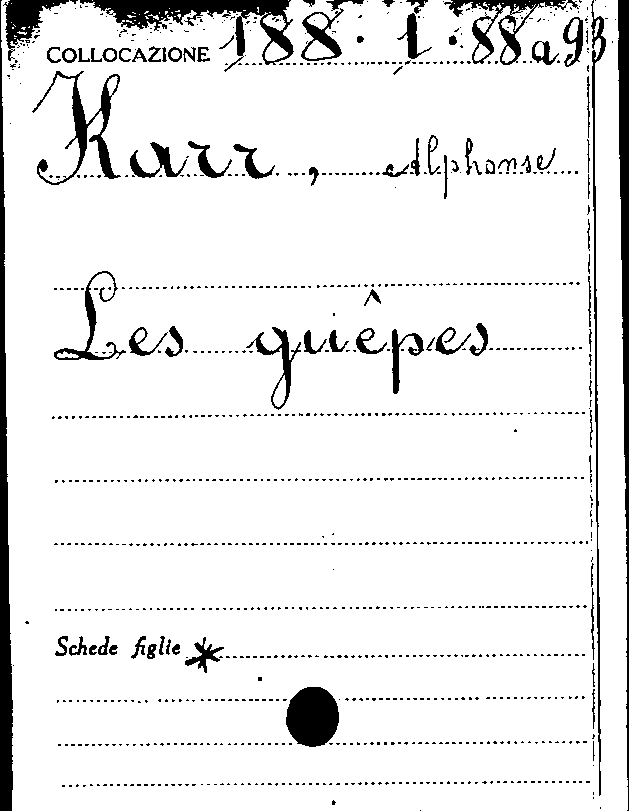 COLLOCAZIONE 188. 1. 88 a 93
Karr, Alphonse
Les guêpes
Schede figlie *